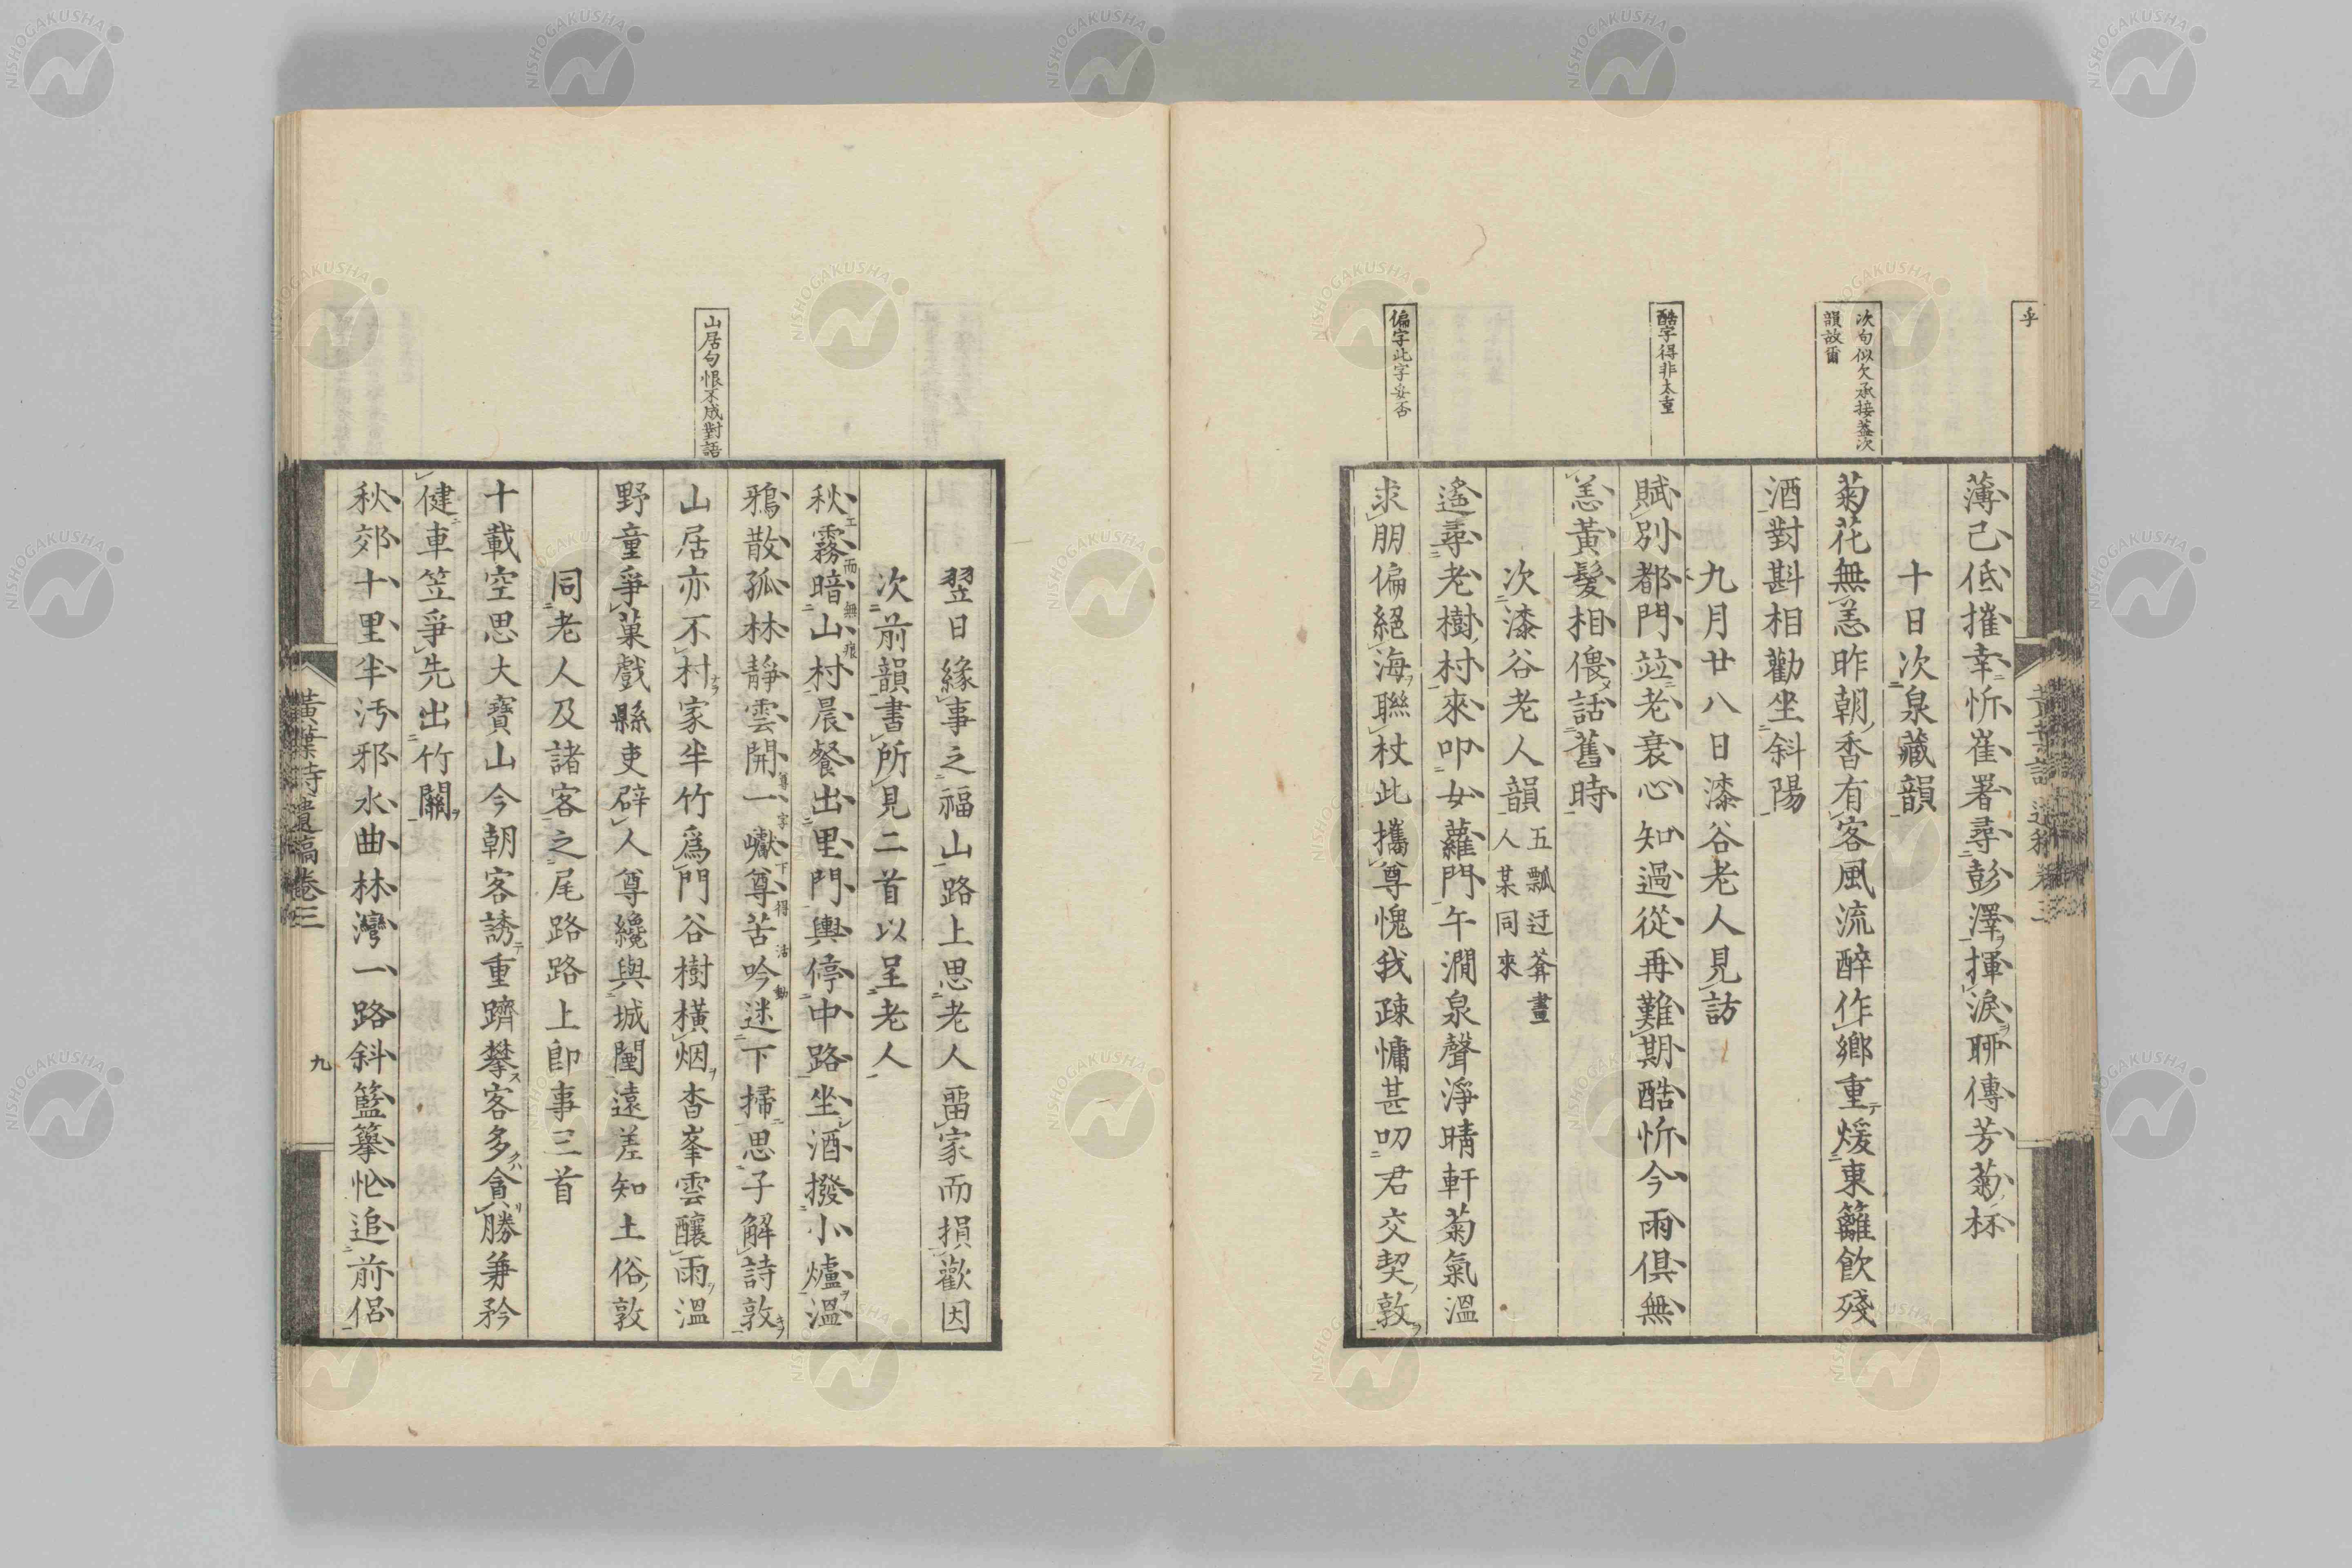 乎
次句似欠承接蓋次
韻故爾
酷字得非太重
偏字此字妥否
薄己低摧幸忻崔署尋彭澤揮淚聊傳芳菊杯
十日次泉藏韻
菊花無恙昨朝香有客風流醉作鄉重煖東籬飲殘
酒對斟相勸坐斜陽
九月廿八日漆谷老人見訪
賦別都門竝老衰心知過從再難期酷忻今雨俱無
恙黃髮相偎話舊時
次漆谷老人韻
五瓢迂莾畫
人某同來
遙尋老樹村來叩女蘿門午澗泉聲淨晴軒菊氣溫
求朋偏絕海聯杖此攜尊愧我疎慵甚叨君交契敦
山居句恨不成對語
翌日緣事之福山路上思老人畱家而損歡因
次前韻書所見二首以呈老人
秋霧暗山村晨餐出里門輿停中路坐酒撥小爐溫
鴉散孤林靜雲開一巘尊苦吟迷下掃思子解詩敦
山居亦不村家半竹爲門谷樹橫烟杳峯雲釀雨溫
野童爭菓戲縣吏辟人尊纔與城闉遠差知土俗敦
同老人及諸客之尾路路上卽事三首
十載空思大寶山今朝客誘重躋攀客多貪勝兼矜
健車笠爭先出竹關
秋郊十里半汚邪水曲林灣一路斜籃篺忙追前侶
黃葉詩遺稿卷三
九